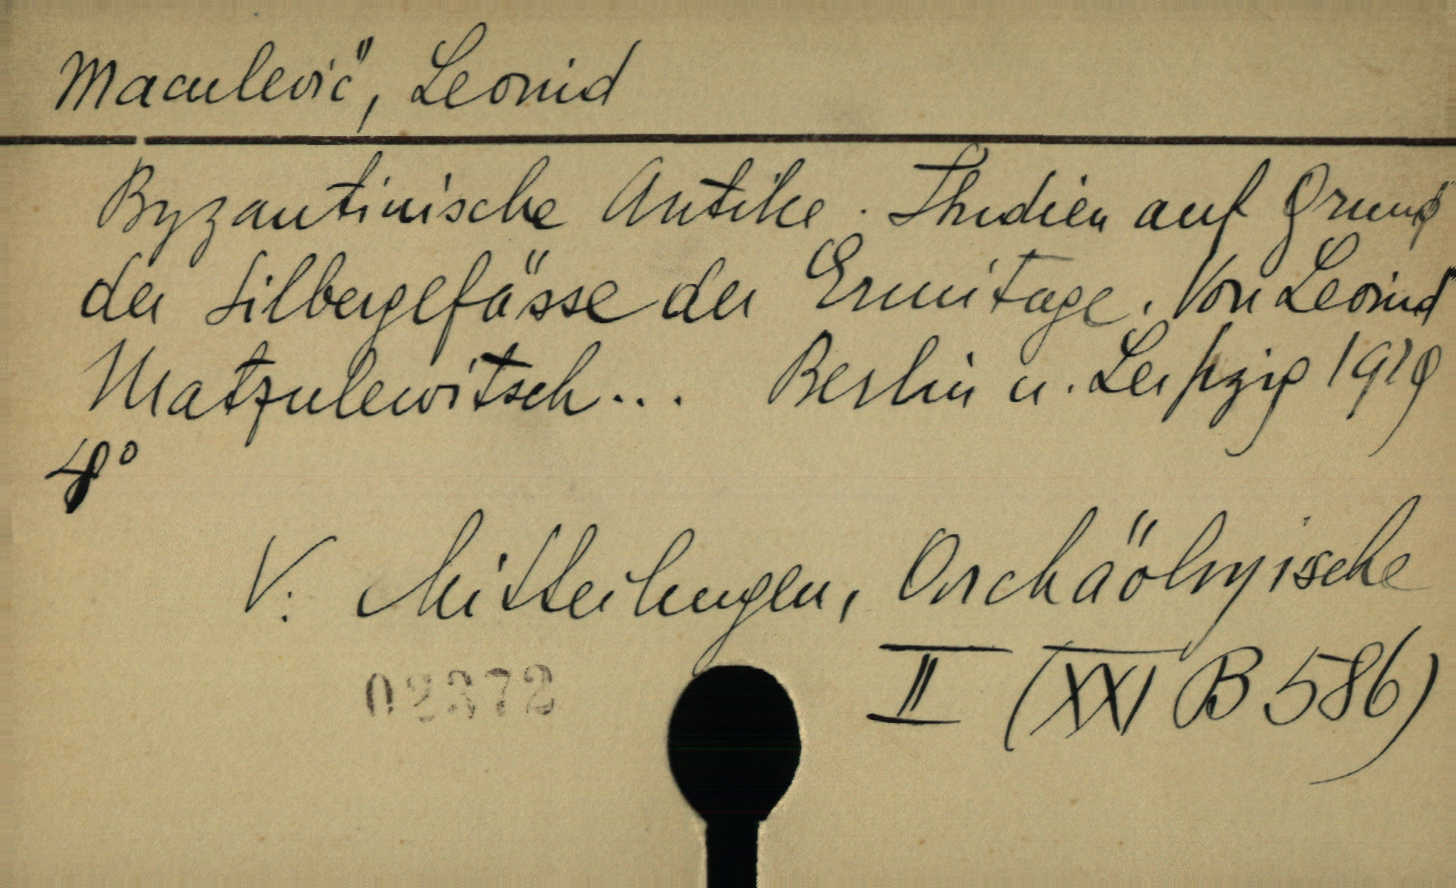 Maculević, Leonid
Byzantinische Antike. Studien auf Grund
der Silbergefässe der Ermitage. Von Leonid
Matzulewitsch... Berlin u. Leipzig 1929
4°
V. Mitteilungen, Archäologische
II (XXI B 586)
02372